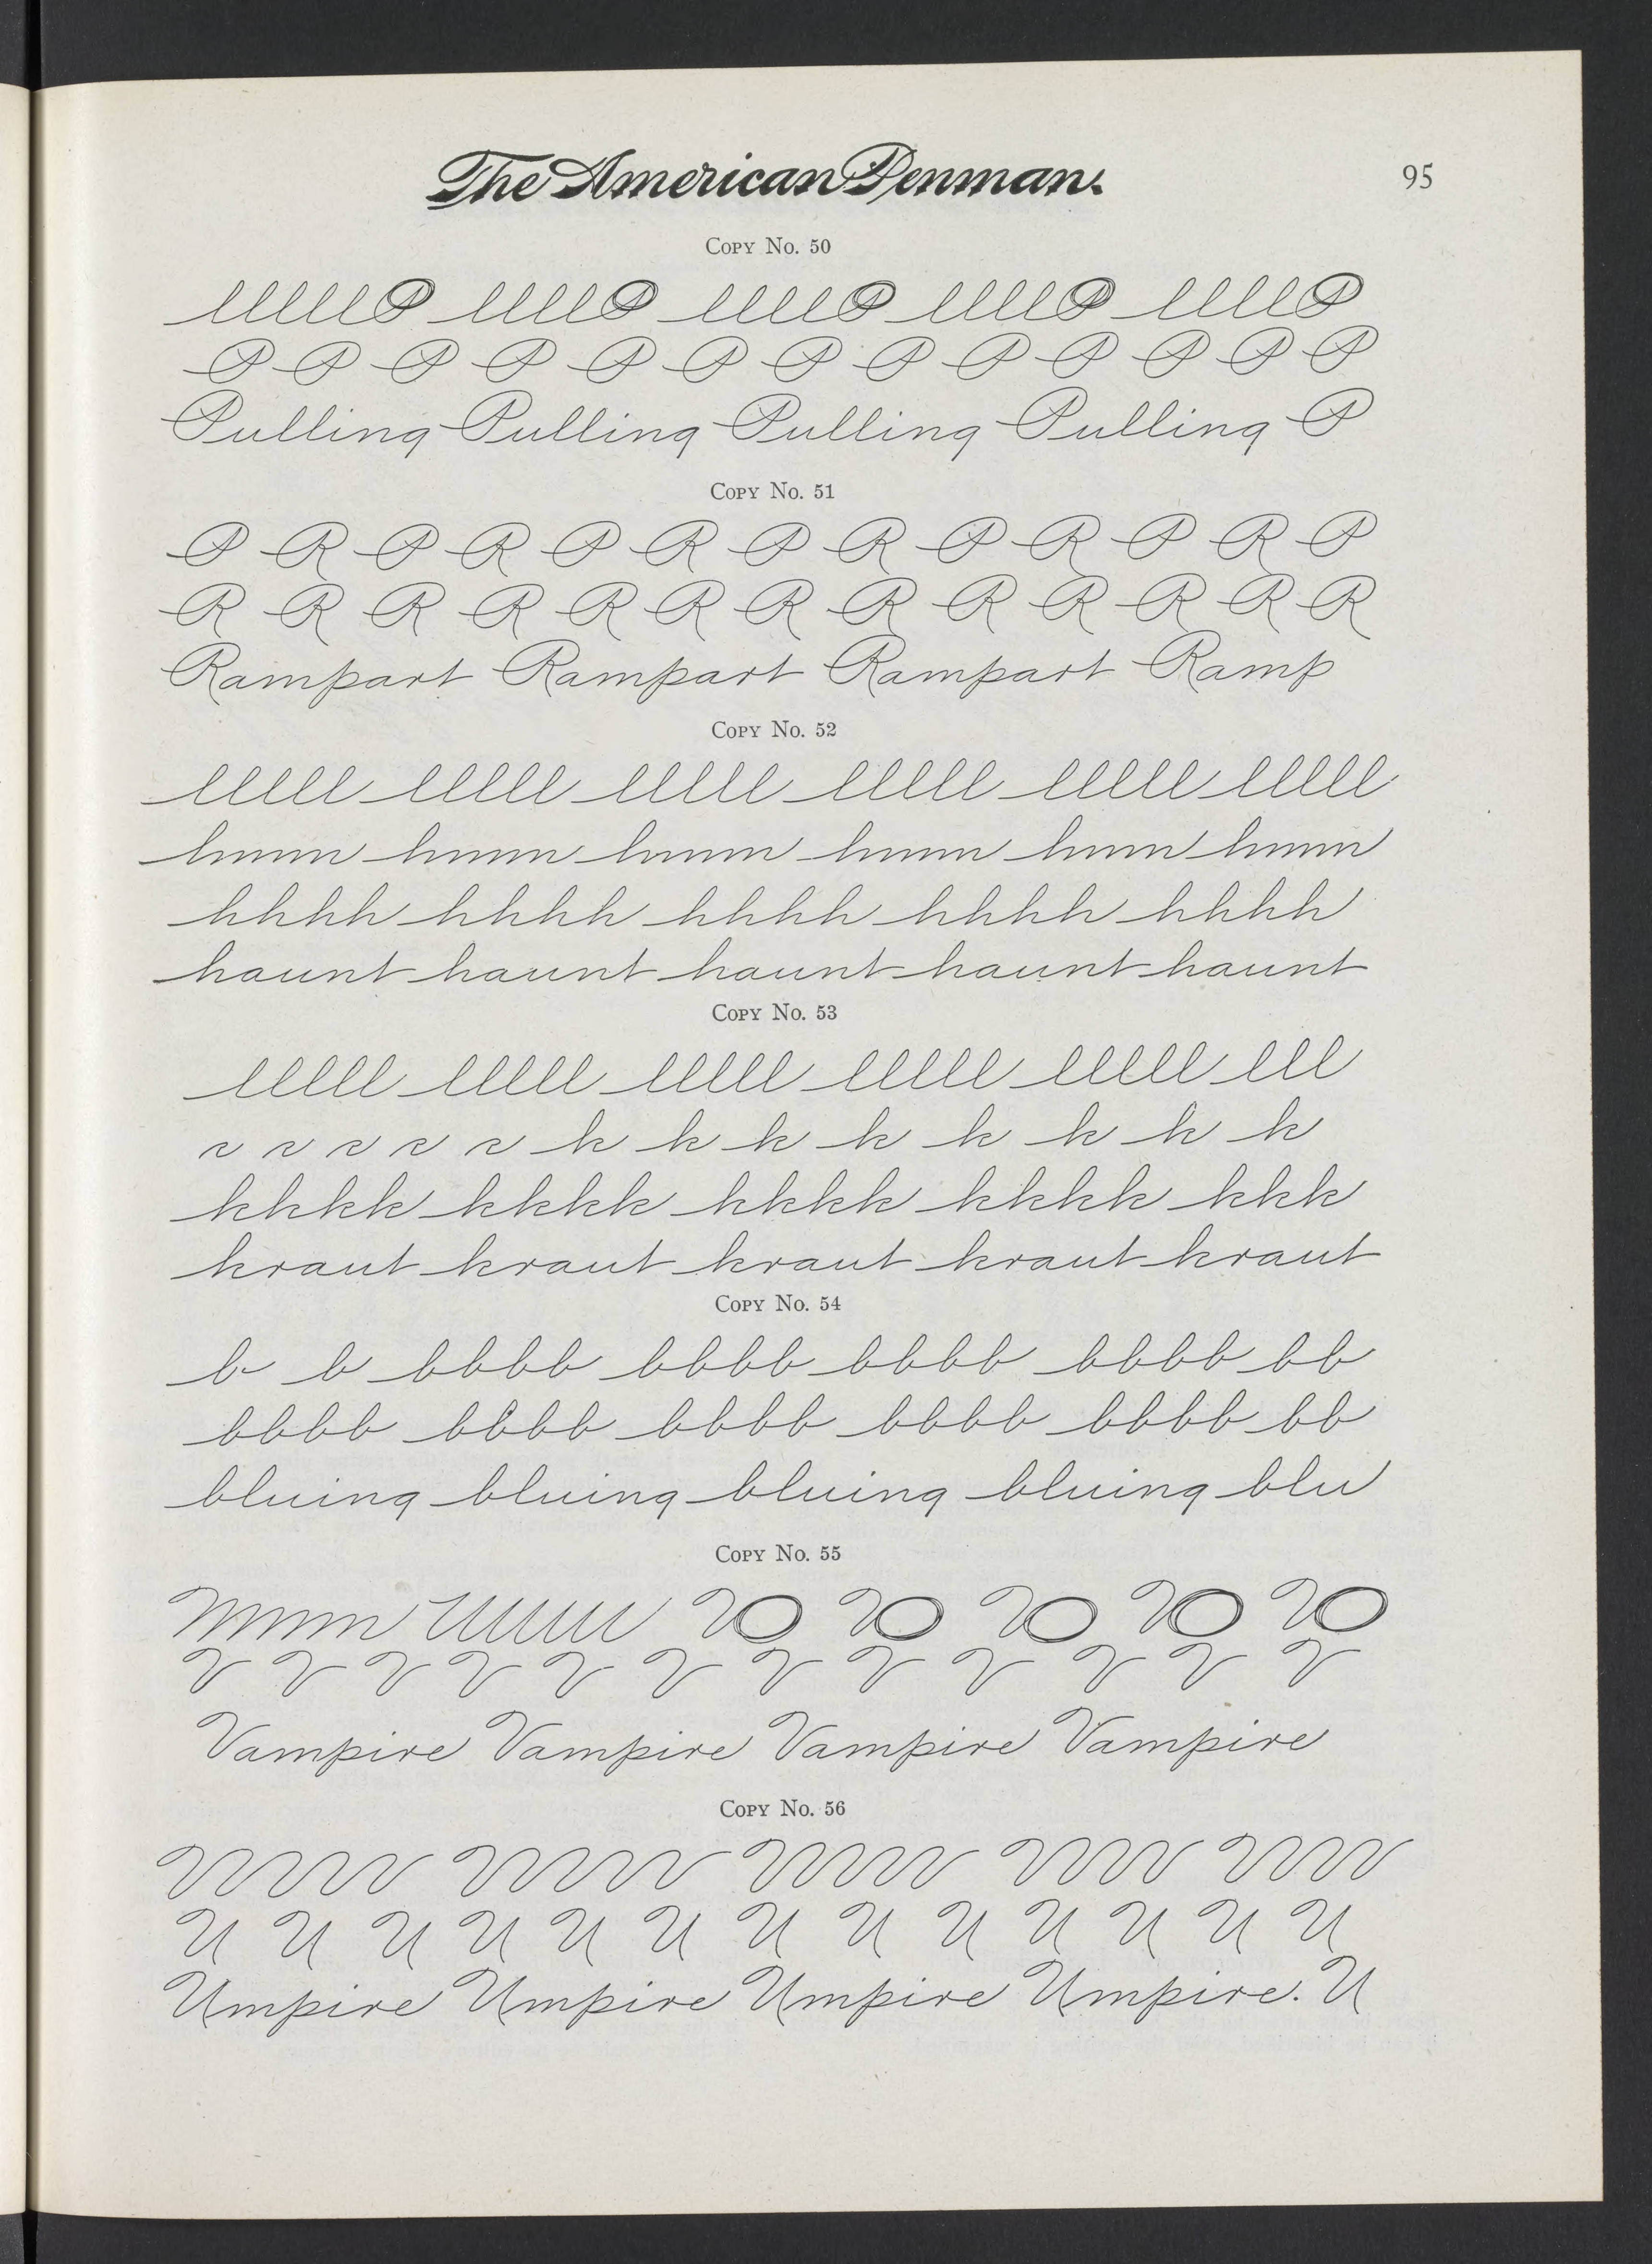 The American Penman.
95
Copy No. 50
lllllP llllP llllP llllP llllP
P P P P P P P P P P P P P
Pulling Pulling Pulling Pulling P
Copy No. 51
P R P R P R P R P R P R P
R R R R R R R R R R R R R
Rampart Rampart Rampart Ramp
Copy No. 52
lllll lllll lllll lllll lllll lllll
hhhh hhhh hhhh hhhh hhhh
haunt haunt haunt haunt haunt
Copy No. 53
lllll lllll lllll lllll lllll lll
kkkk kkkk kkkk kkkk kkk
kraut kraut kraut kraut kraut
Copy No. 54
b b bbbb bbbb bbbb bbbb bb
bbbb bbbb bbbb bbbb bbbb bb
bluing bluing bluing bluing blu
Copy No. 55
V V V V V V V V V V V V
Vampire Vampire Vampire Vampire
Copy No. 56
U U U U U U U U U U U U U
Umpire Umpire Umpire Umpire. U